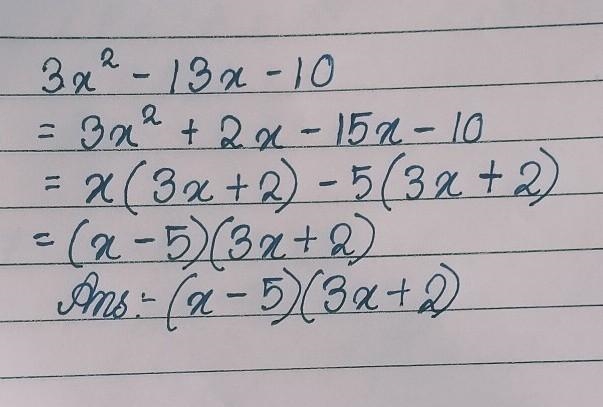 3x² - 13x - 10
= 3x² + 2x - 15x - 10
= x(3x + 2) - 5(3x + 2)
= (x - 5)(3x + 2)
Ans:- (x - 5)(3x + 2)